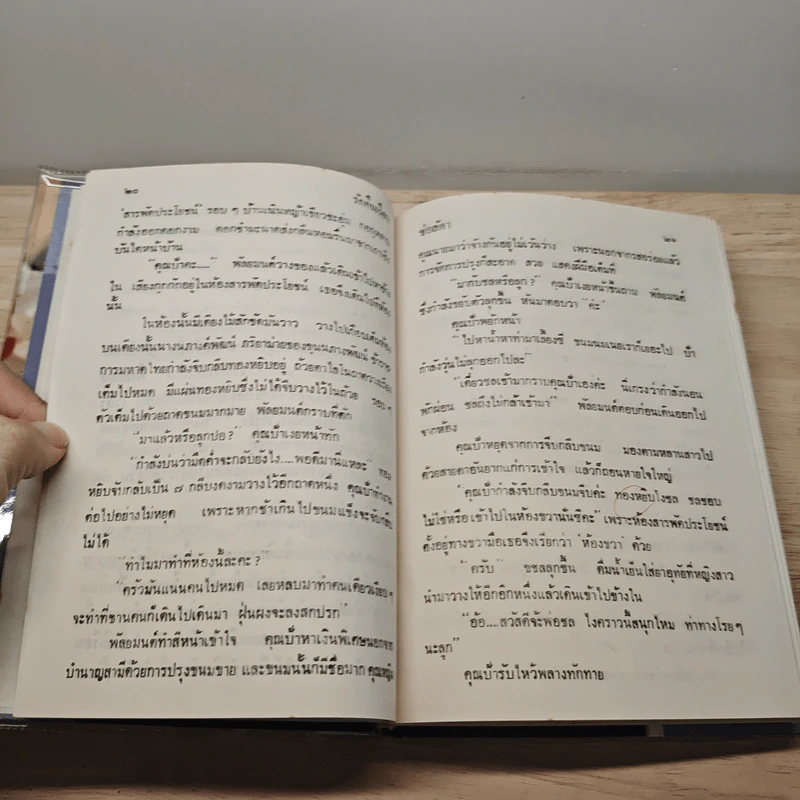 ๒๐
"สารพัดประโยชน์" รอบ ๆ บ้านเนินหญ้าเขียวชะอุ่ม
กำลังออกดอกงาม ดอกชำมะนาดส่งกลิ่นหอมรื่นมาจาก
บันไดหน้าบ้าน
"คุณป้าคะ....." พลัยมนต์วางของแล้วเดินเข้าไป
ใน เสียงกุกกักอยู่ในห้องสารพัดประโยชน์ เธอจึงเดินไปที่ห้อง
นั้น
ในห้องนั้นมีเตียงไม้สักขัดมันวาว วางไปเกือบเต็มห้อง
บนเตียงนั้นนางนภางค์พัฒน์ ภริยาม่ายของขุนนภางพัฒน์ ข้าราช
การมหาดไทยกำลังจับกลีบทองหยิบอยู่ ถ้วยตะไลในถาดวางเรียง
เต็มไปหมด มีแผ่นทองหยิบซึ่งไม่ได้จีบวางไว้ในถ้วย รอบ ๆ
ตัวเต็มไปด้วยถาดขนมมากมาย พลัยมนต์กราบที่ตัก
"มาแล้วหรือลูกปอ?" คุณป้าเงยหน้าทัก
"กำลังบ่นว่ามืดค่ำจะกลับยังไง.....พอดีมานี่แหละ" ทอง
หยิบจับกลีบเป็น ๗ กลีบงดงามวางไว้อีกถาดหนึ่ง คุณป้าทำงาน
ต่อไปอย่างไม่หยุด เพราะหากช้าเกินไปขนมแข็งจะจับกลีบ
ไม่ได้
"ทำไมมาทำที่ห้องนี้ล่ะคะ?"
"ครัวมันแน่นคนไปหมด เลยหลบมาทำคนเดียวเงียบ ๆ
จะทำที่ชานคนก็เดินไปเดินมา ฝุ่นผงจะลงสกปรก"
พลัยมนต์ทำสีหน้าเข้าใจ คุณป้าหาเงินพิเศษนอกจาก
บำนาญสามีด้วยการปรุงขนมขาย และขนมนั้นก็มีชื่อมาก คุณหญิง
ช่อลัดา
๒๑
คุณนายมาว่าจ้างกันอยู่ไม่เว้นว่าง เพราะนอกจากรสอร่อยแล้ว
การจัดการปรุงก็สะอาด สวย แสดงฝีมือเต็มที่
"มากับชลหรือลูก?" คุณป้าเงยหน้าขึ้นถาม พลัยมนต์
ซึ่งกำลังขยับตัวลุกขึ้น หันมาตอบว่า "ค่ะ"
คุณป้าพยักหน้า
"ไปหาน้ำหาท่ามาเลี้ยงซี ขนมนมเนยเราก็เยอะไป ป้า
กำลังวุ่นไม่ลุกออกไปละ"
"เดี๋ยวชลเข้ามากราบคุณป้าเองค่ะ นี่เกรงว่ากำลังนอน
พักผ่อน ชลถึงไม่กล้าเข้ามา" พลัยมนต์ตอบก่อนเดินออกไป
จากห้อง
คุณป้าหยุดจากการจีบกลีบขนม มองตามหลานสาวไป
ด้วยสายตาอันยากแก่การเข้าใจ แล้วก็ถอนหายใจใหญ่
"คุณป้ากำลังจีบกลีบขนมจีบค่ะ ทองหยิบไงชล ชลชอบ
ไม่ใช่หรือ เข้าไปในห้องขวานั่นซีคะ" เพราะห้องสารพัดประโยชน์
ตั้งอยู่ทางขวามือเธอจึงเรียกว่า 'ห้องขวา' ด้วย
"ครับ" ชลลุกขึ้น ดื่มน้ำเย็นใส่ยาอุทัยที่หญิงสาว
นำมาวางให้อีกอึกหนึ่งแล้วเดินเข้าไปข้างใน
"อ้อ.....สวัสดีจ้ะพ่อชล ไงคราวนี้สนุกไหม ท่าทางโรย ๆ
นะลูก"
คุณป้ารับไหว้พลางทักทาย